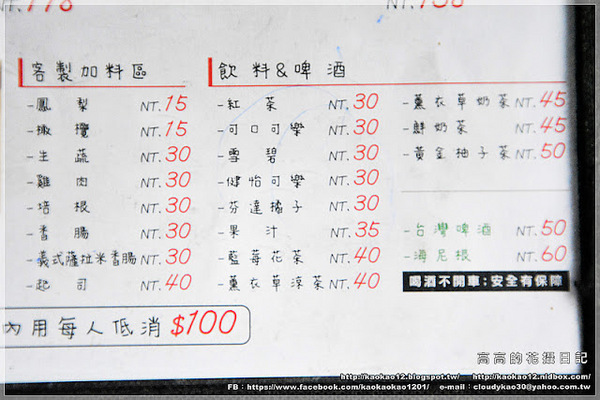 客製加料區
-鳳梨 NT.15
-橄欖 NT.15
-生蔬 NT.30
-雞肉 NT.30
-培根 NT.30
-香腸 NT.30
-義式薩拉米香腸 NT.30
-起司 NT.40
飲料&啤酒
-紅茶 NT.30
-可口可樂 NT.30
-雪碧 NT.30
-健怡可樂 NT.30
-芬達橘子 NT.30
-果汁 NT.35
-藍莓花茶 NT.40
-薰衣草涼茶 NT.40
-薰衣草奶茶 NT.45
-鮮奶茶 NT.45
-黃金柚子茶 NT.50
-台灣啤酒 50
-海尼根 60
喝酒不開車:安全有保障
內用每人低消 $100
高高的旅攝日記
http://kaokao12.blogspot.tw/ http://kaokao12.nidbox.com/
FB:https://www.facebook.com/kaokaokao1201/ e-mail:cloudykao30@yahoo.com.tw